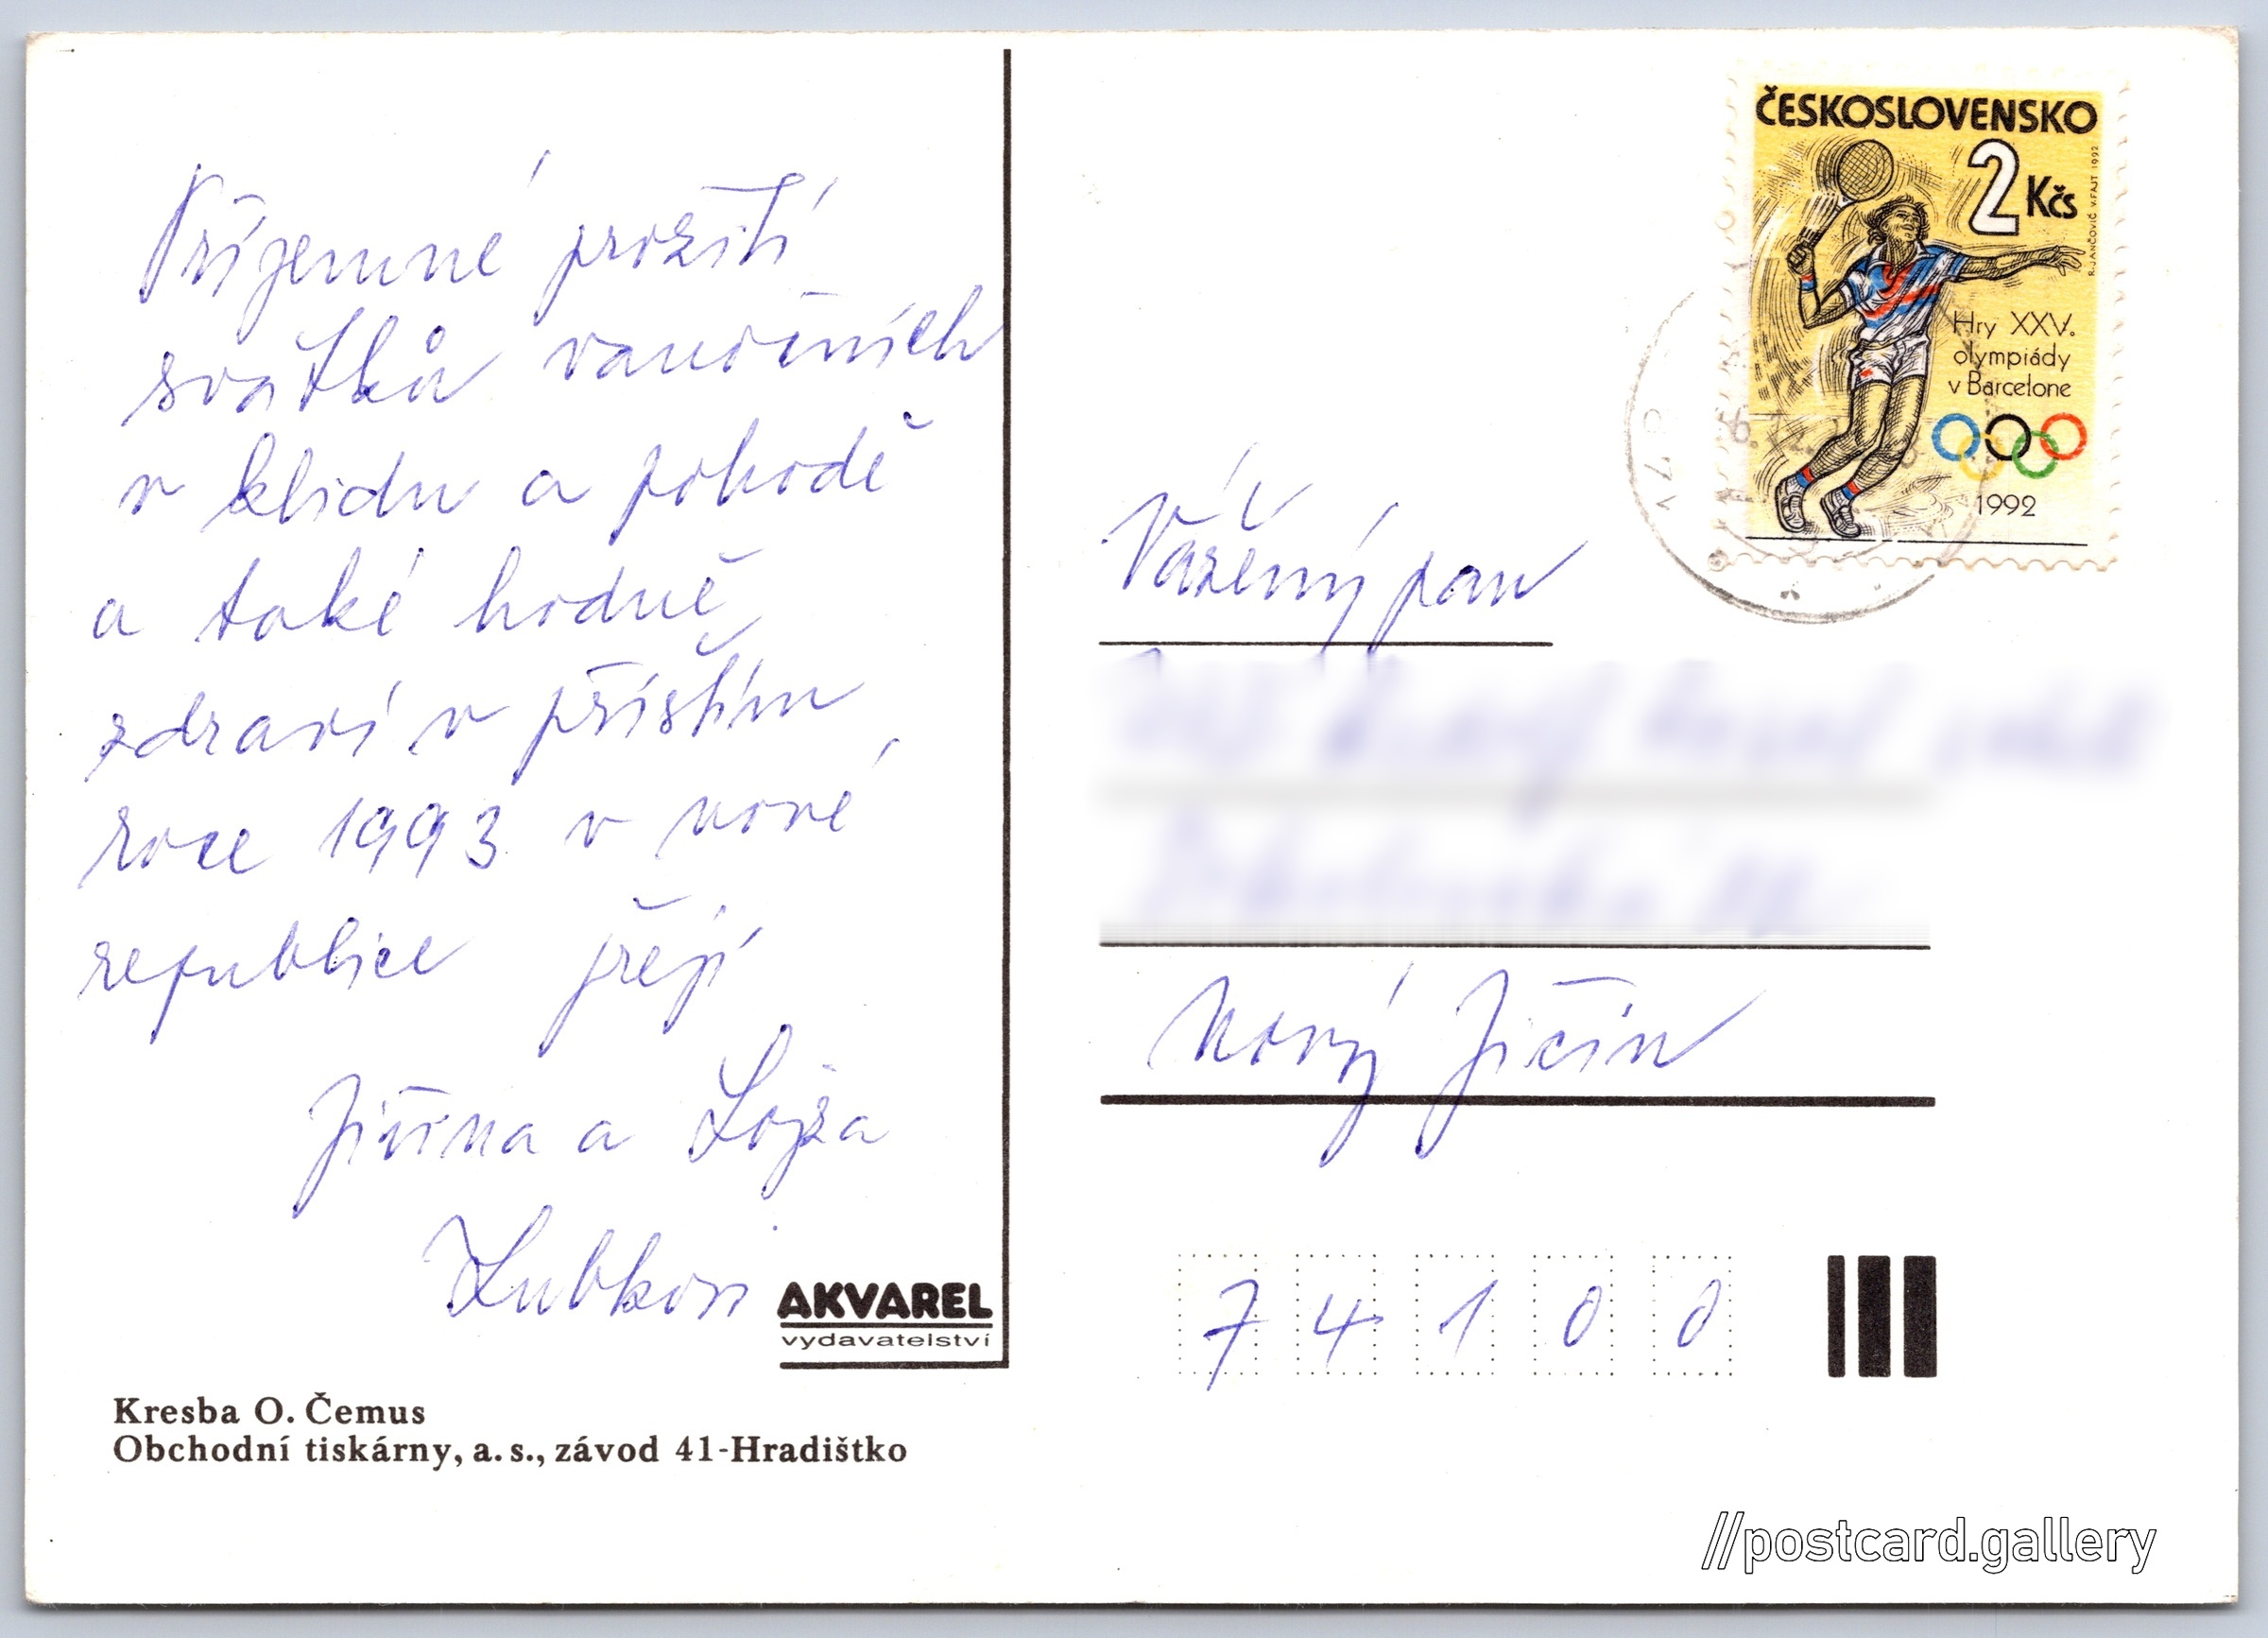 Příjemné prožití
svátků vánočních
v klidu a pohodě
a také hodně
zdraví v příštím
roce 1993 v nové
republice přejí
Jiřina a Lojza
Lubkovi
AKVAREL
vydavatelství
Kresba O. Čemus
Obchodní tiskárny, a. s., závod 41-Hradištko
ČESKOSLOVENSKO
2 Kčs
R. JANČOVIČ V. FAJT 1992
Hry XXV.
olympiády
v Barcelone
1992
Vážený pan
Nový Jičín
74100
//postcard.gallery